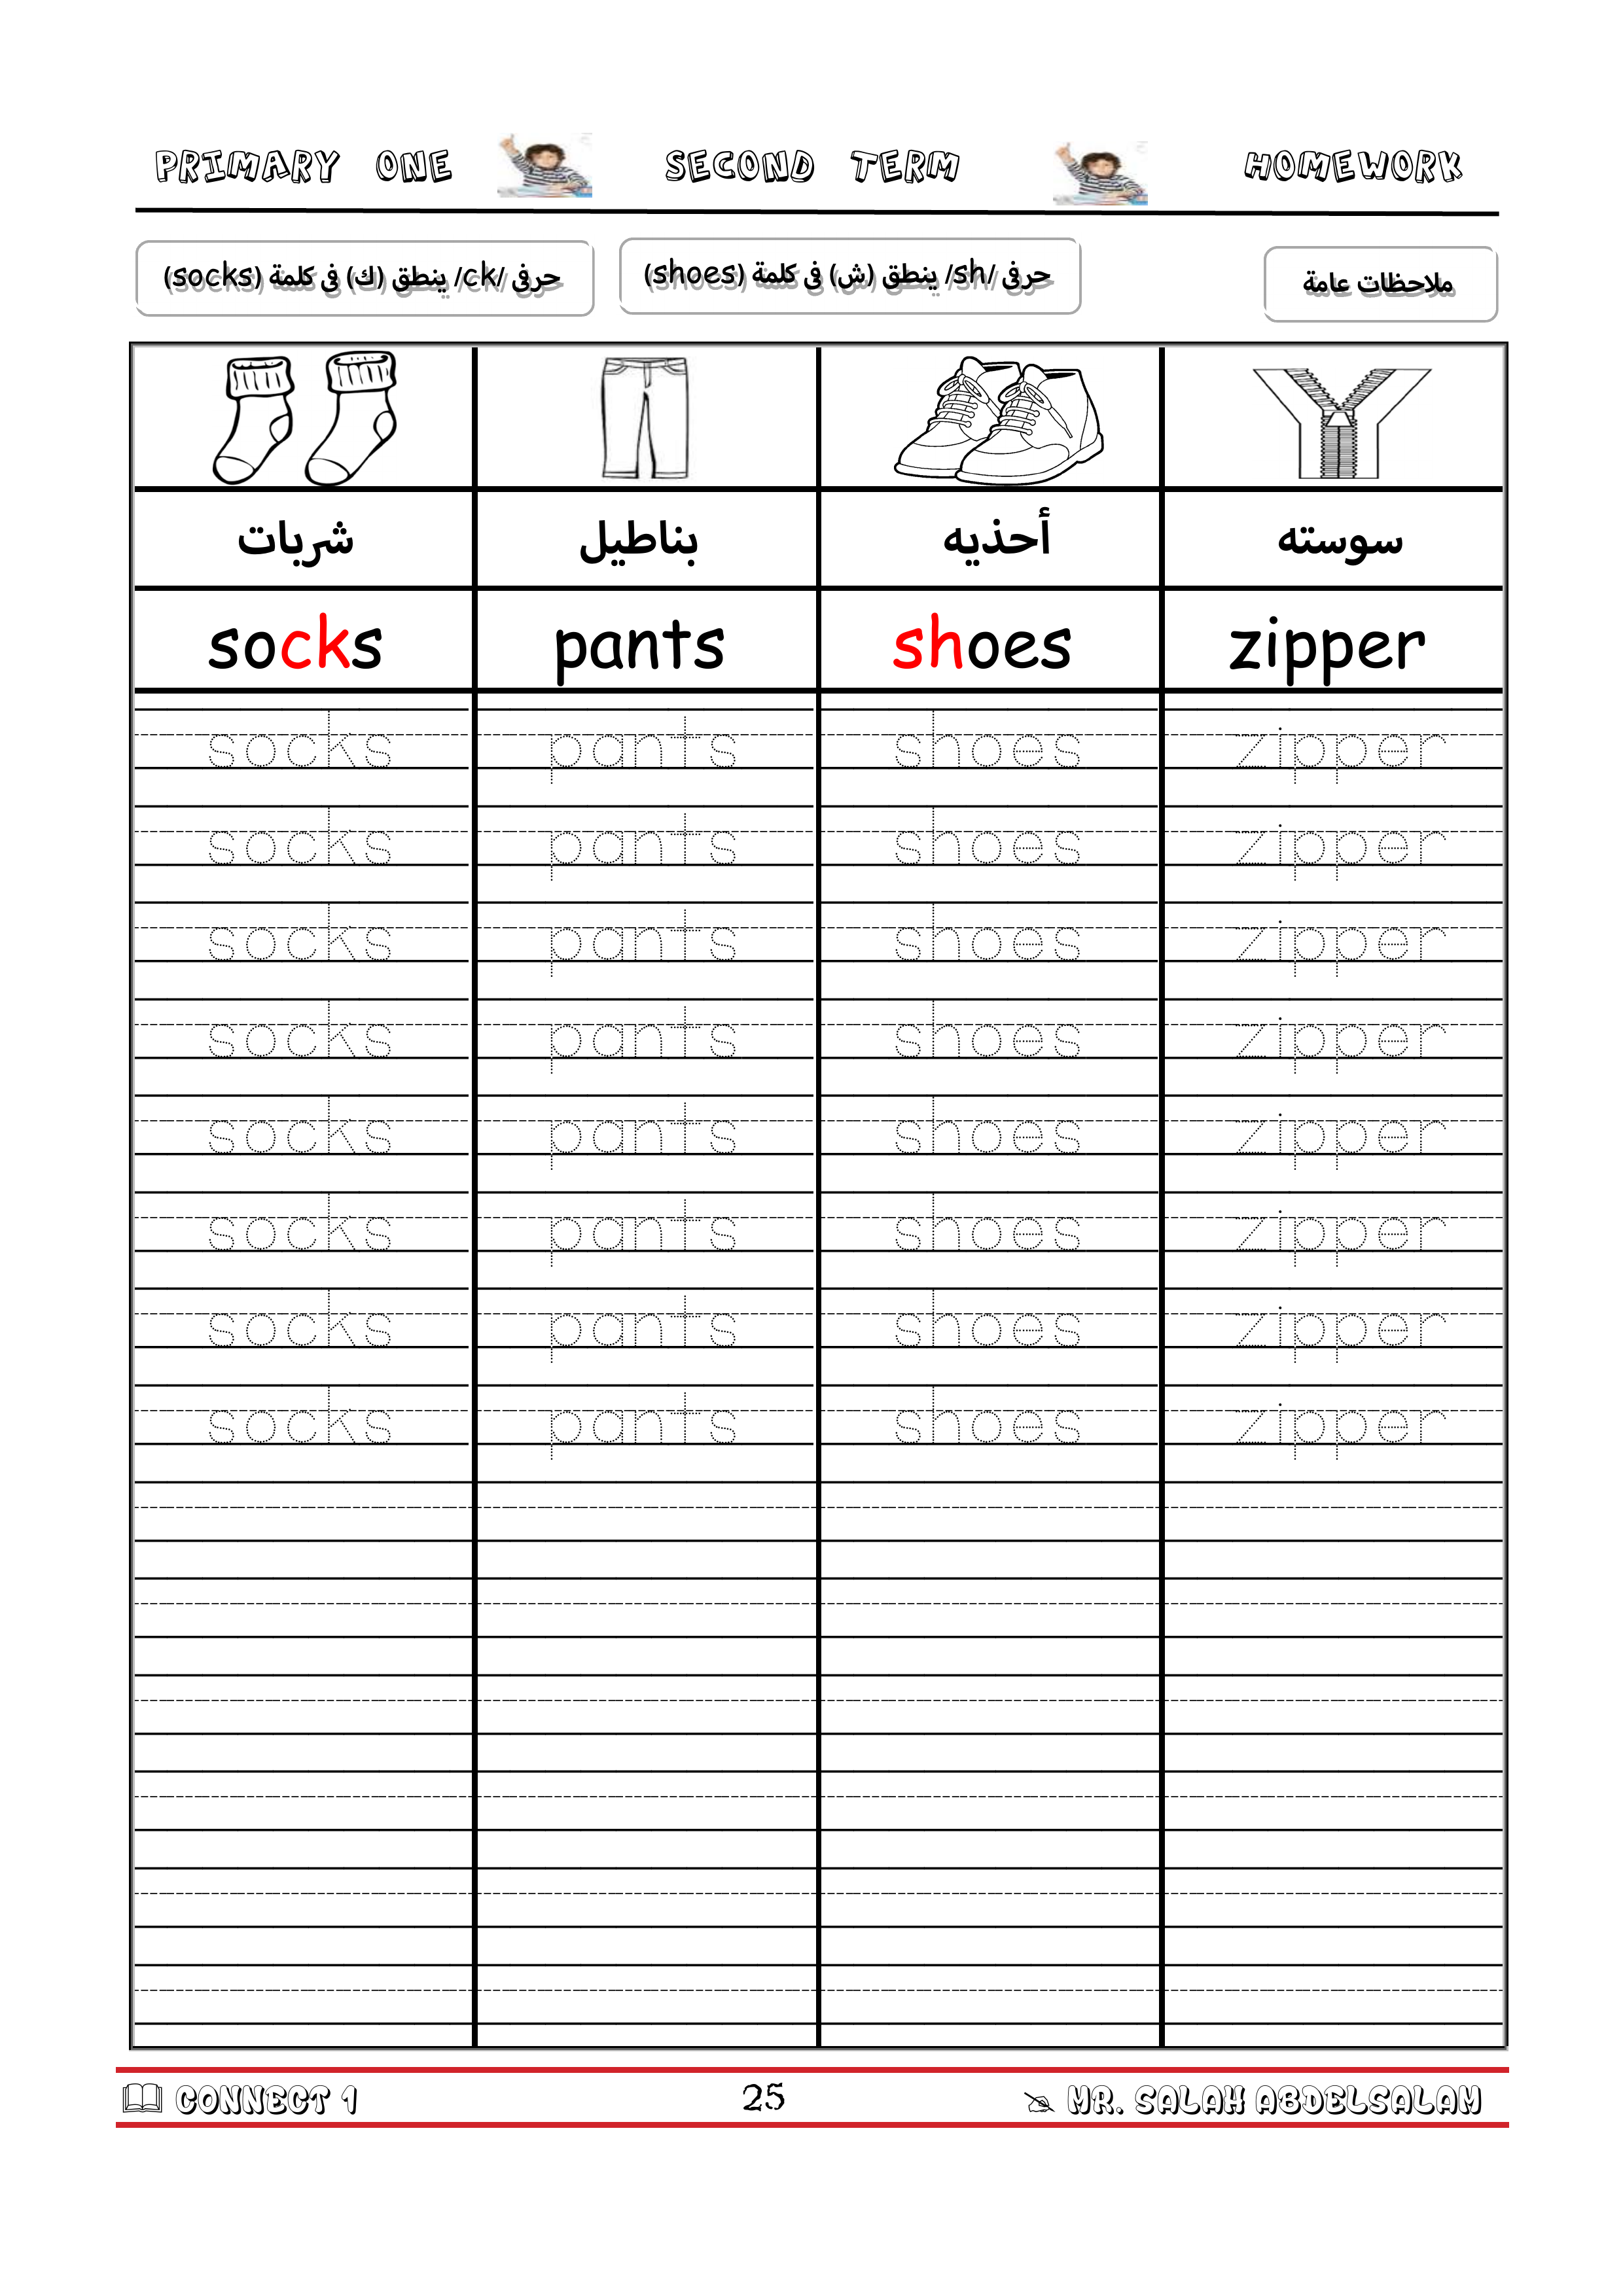 PRIMARY ONE SECOND TERM HOMEWORK
ملاحظات عامة
حرفى /sh/ ينطق (ش) فى كلمة (shoes)
حرفى /ck/ ينطق (ك) فى كلمة (socks)
شربات بناطيل أحذيه سوسته
socks pants shoes zipper
socks pants shoes zipper
socks pants shoes zipper
socks pants shoes zipper
socks pants shoes zipper
socks pants shoes zipper
socks pants shoes zipper
socks pants shoes zipper
socks pants shoes zipper
CONNECT 1 25 MR. SALAH ABDELSALAM